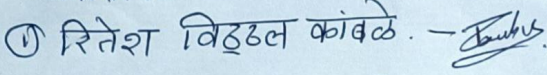 ① रितेश विठ्ठल कांबळे. -